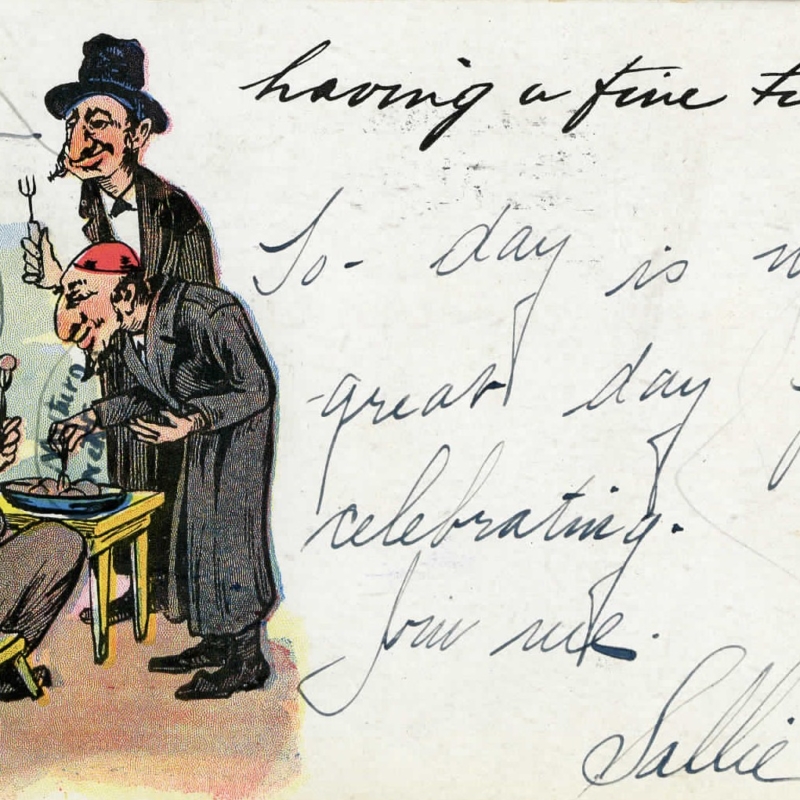 having a fine
To-day is
great day
celebrating.
Join me.
Sallie